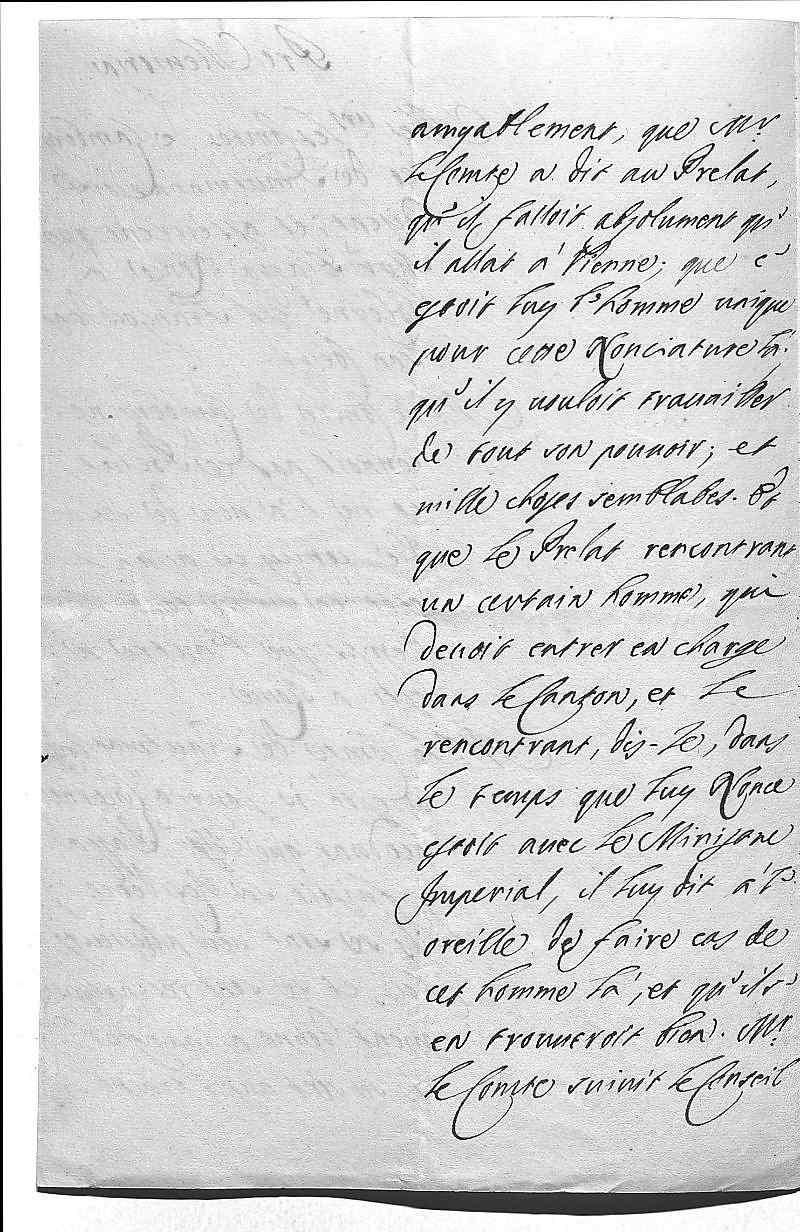 amyablement, que Mr.
le Comte a dit au Prelat,
qu'il falloit absolument qu'
il allat a' Vienne; que c'
estoit luy l'homme unique
pour cette Nonciature la'.
qu'il y vouloit travailler
de tout son pouvoir; et
mille choses semblabes. Et
que le Prelat rencontrant
un certain homme, qui
devoit entrer en charge
dans le Canton, et le
rencontrant, dis-Je, dans
le temps que luy Nonce
estoit avec le Ministre
Imperial, il luy dit a' l'
oreille de faire cas de
cet homme la', et qu'il s'
en trouveroit bien. Mr.
le Comte suivit le Conseil